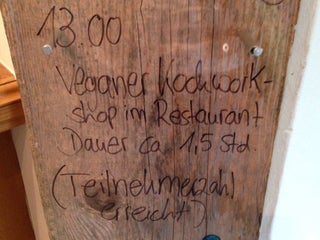 13.00
Veganer Kochwork-
shop im Restaurant
Dauer ca. 1,5 Std.
(Teilnehmerzahl
erreicht)